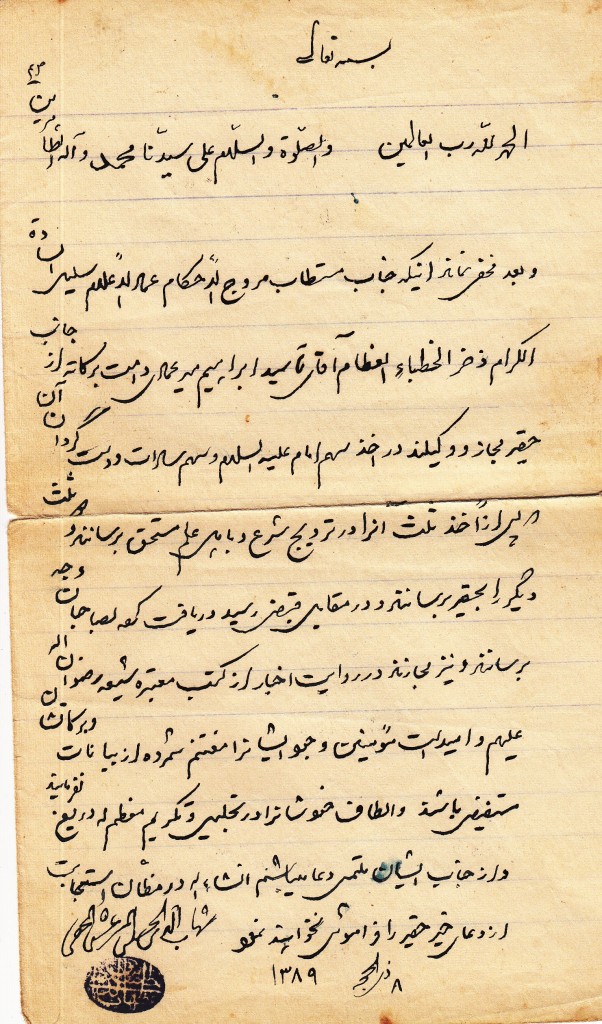 بسمه تعالی
الحمد للّه رب العالمین والصّلوة والسّلام علی سیدّنا محمد و آله الطّاهرین
و بعد مخفی نماند اینکه جناب مستطاب مروج الأحکام عماد الأعلام سلیل السادة
الکرام ذخر الخطباء العظام آقای آقا سید ابراهیم میر عمادی دامت برکاته از جانب
حقیر مجاز و وکیلند در اخذ سهم امام علیه السلام و سهم سادات و دست گردان آن
پس از اخذ ثلث آنرا در ترویج شرع و یا باهل علم مستحق برسانند و ثلث
دیگر را بحقیر برسانند و در مقابل قبض رسید دریافت کرده بصاحبان وجه
برسانند و نیز مجازند در روایت اخبار از کتب معتبره شیعه رضوان اله
علیهم و امید است مؤمنین وجود ایشانرا مغتنم شمرده از بیانات و برکاتشان
مستفیض باشند و الطاف خودشانرا در تجلیل و تکریم معظم له دریغ نفرمایند
و از جناب ایشان ملتمس دعا میباشم انشاء اله در مظانّ استجابت
از دعای خیر حقیر را فراموش نخواهند نمود
شهاب الدین الحسینی المرعشی النجفی
۸ ذی الحجه ۱۳۸۹